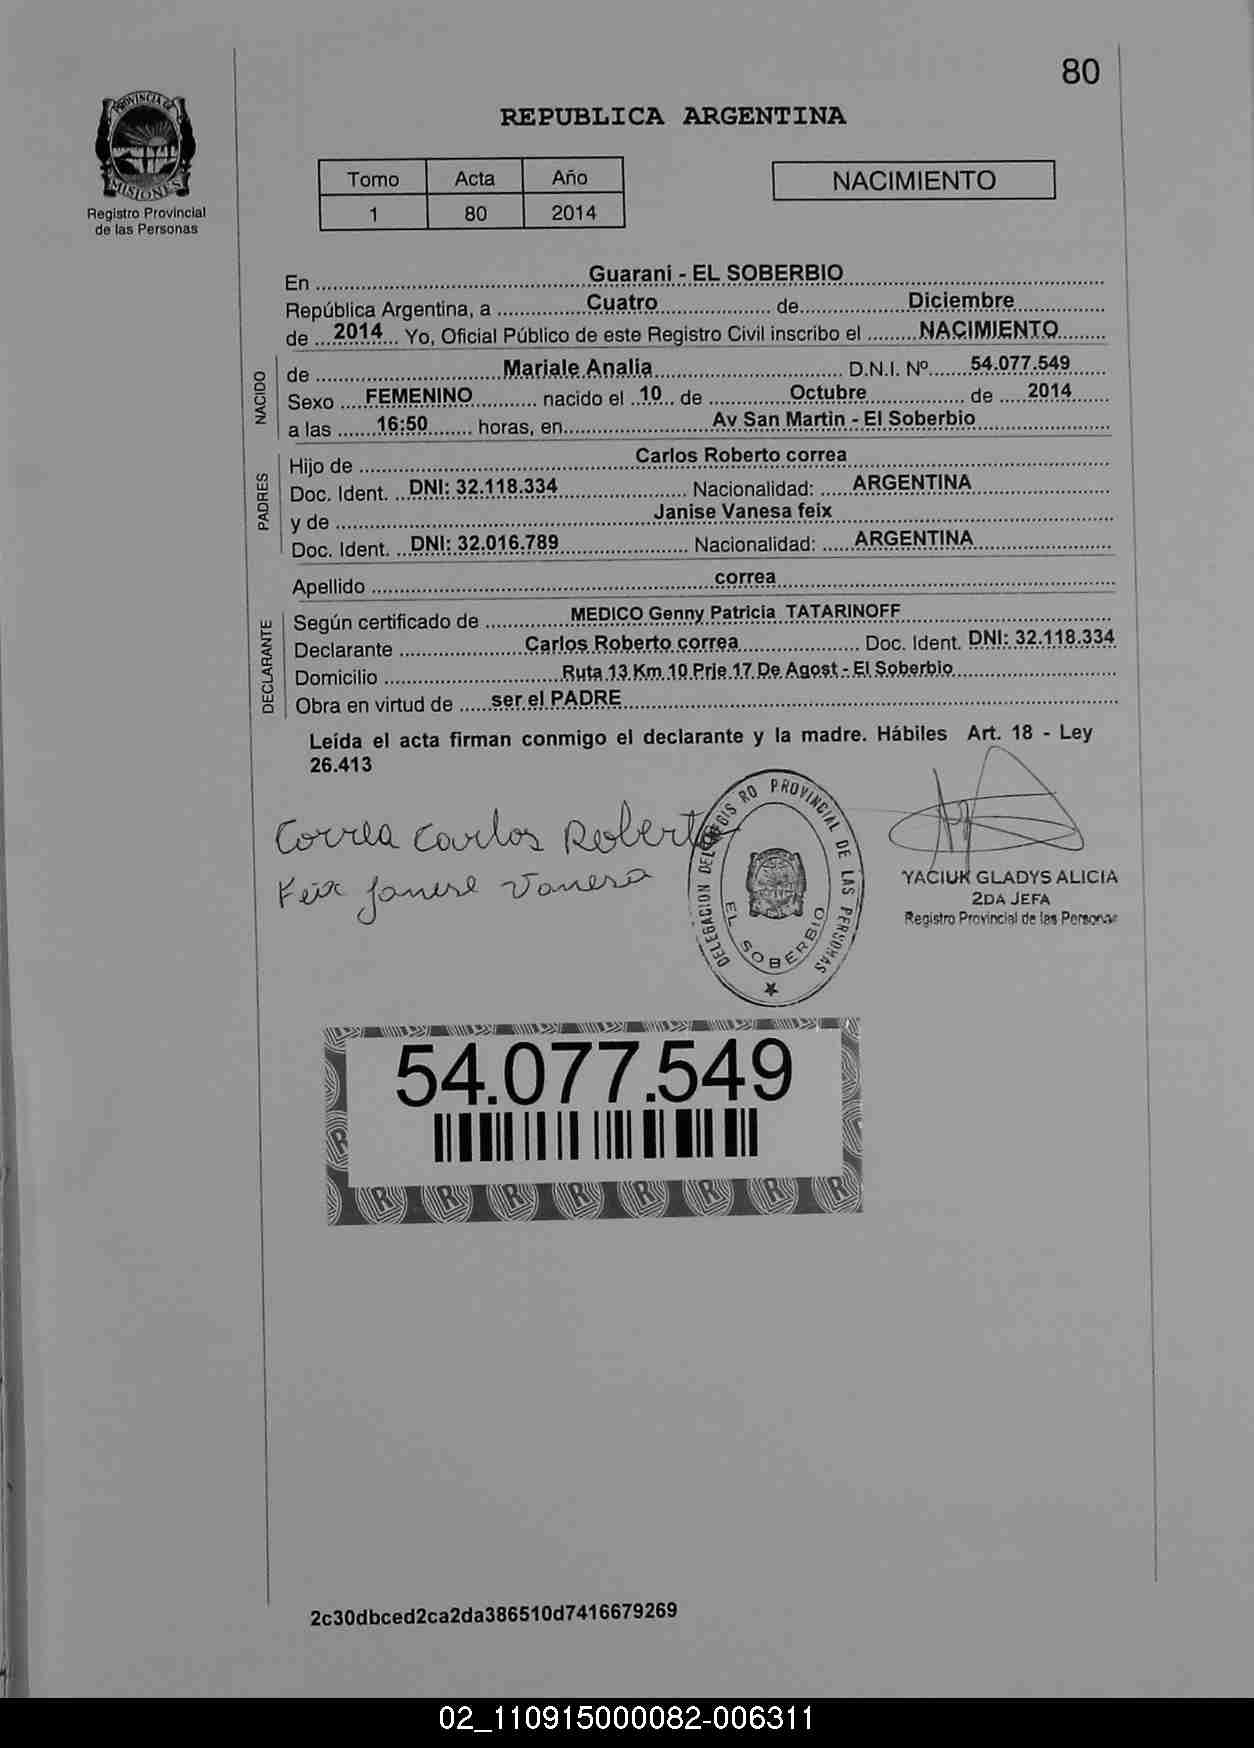 80
PROVINCIA DE
MISIONES
Registro Provincial
de las Personas
REPUBLICA ARGENTINA
Tomo Acta Año
1 80 2014
NACIMIENTO
En Guarani - EL SOBERBIO
República Argentina, a Cuatro de Diciembre
de 2014 Yo, Oficial Público de este Registro Civil inscribo el NACIMIENTO
NACIDO
de Mariale Analia D.N.I. Nº 54.077.549
Sexo FEMENINO nacido el 10 de Octubre de 2014
a las 16:50 horas, en Av San Martin - El Soberbio
PADRES
Hijo de Carlos Roberto correa
Doc. Ident. DNI: 32.118.334 Nacionalidad: ARGENTINA
y de Janise Vanesa feix
Doc. Ident. DNI: 32.016.789 Nacionalidad: ARGENTINA
Apellido correa
DECLARANTE
Según certificado de MEDICO Genny Patricia TATARINOFF
Declarante Carlos Roberto correa Doc. Ident. DNI: 32.118.334
Domicilio Ruta 13 Km 10 Prje 17 De Agost - El Soberbio
Obra en virtud de ser el PADRE
Leída el acta firman conmigo el declarante y la madre. Hábiles Art. 18 - Ley
26.413
Correa Carlos Roberto
Feix Janise Vanesa
DELEGACION DEL REGISTRO PROVINCIAL DE LAS PERSONAS
EL SOBERBIO
YACIUK GLADYS ALICIA
2DA JEFA
Registro Provincial de las Personas
54.077.549
R R R R R R R R
2c30dbced2ca2da386510d7416679269
02_110915000082-006311